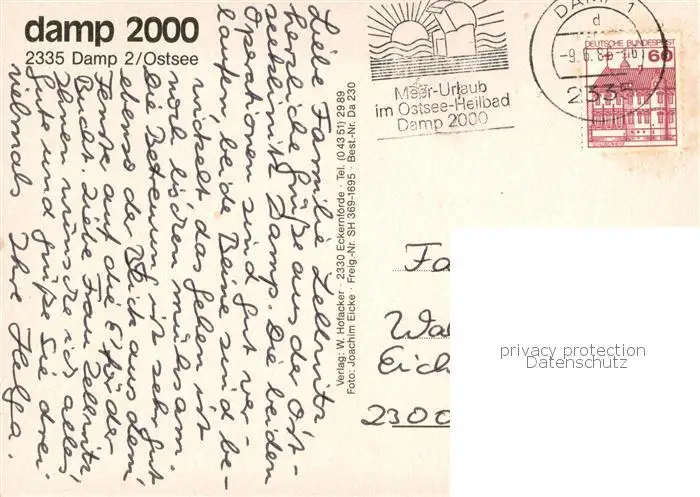 damp 2000
2335 Damp 2/Ostsee
Liebe Familie Zellnitz
herzliche Grüße aus der Ost-
seeklinik Damp. Die beiden
Operationen sind gut ver-
laufen, beide Beine sind be-
wickelt das Gehen ist
noch bisschen mühsam.
Die Betreuung ist sehr gut
ebenso der Blick aus dem
Fenster auf die
Bucht. Liebe Frau Zellnitz
Ihnen wünsche ich alles
Gute und grüße Sie drei
vielmals Ihre Helga.
Verlag: W. Hofacker · 2330 Eckernförde · Tel. (0 43 51) 29 89
Foto: Joachim Eicke · Freig.-Nr. SH 369-1695 · Best.-Nr. Da 230
Meer-Urlaub
im Ostsee-Heilbad
Damp 2000
DAMP 1
d
2335
DEUTSCHE BUNDESPOST
60
Fa
Wal
Eich
2300
privacy protection
Datenschutz